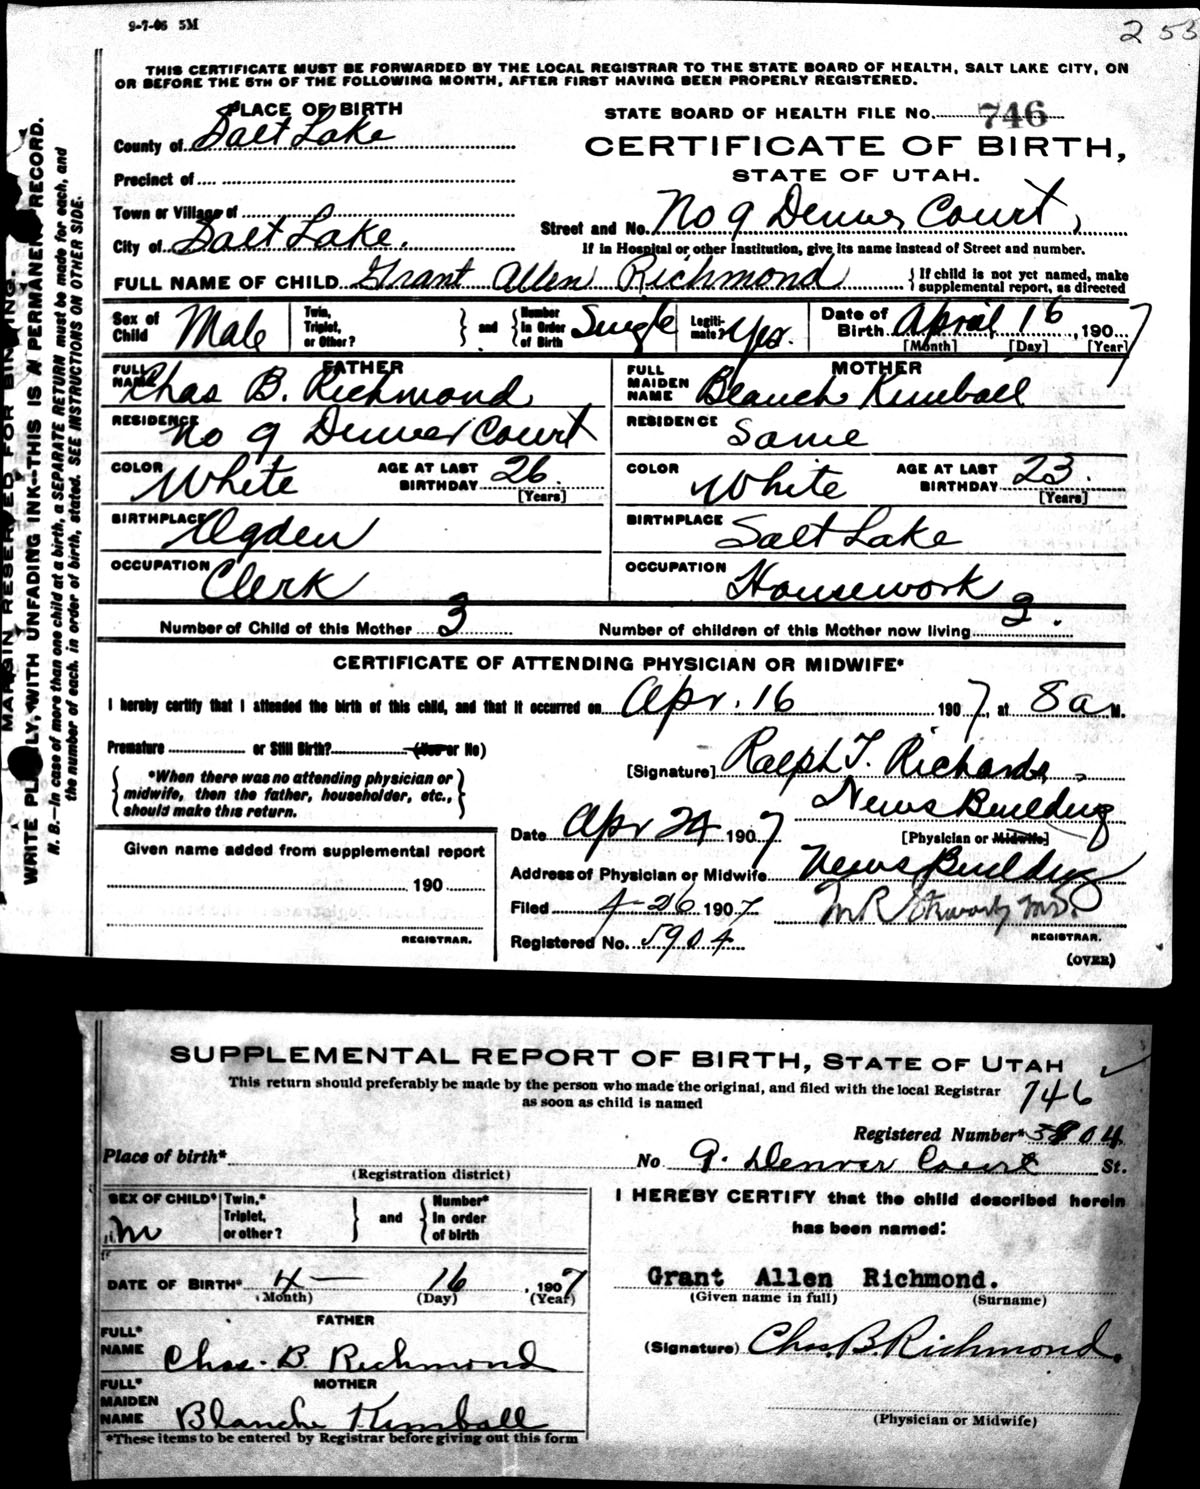 9-7-06 5M
253
THIS CERTIFICATE MUST BE FORWARDED BY THE LOCAL REGISTRAR TO THE STATE BOARD OF HEALTH, SALT LAKE CITY, ON
OR BEFORE THE 5TH OF THE FOLLOWING MONTH, AFTER FIRST HAVING BEEN PROPERLY REGISTERED.
MARGIN RESERVED FOR BINDING.
WRITE PLAINLY, WITH UNFADING INK--THIS IS A PERMANENT RECORD.
N. B.--In case of more than one child at a birth, a SEPARATE RETURN must be made for each, and
the number of each, in order of birth, stated. SEE INSTRUCTIONS ON OTHER SIDE.
PLACE OF BIRTH
STATE BOARD OF HEALTH FILE No. 746
County of Salt Lake
CERTIFICATE OF BIRTH,
STATE OF UTAH.
Precinct of
Town or Village of
Street and No. No 9 Denver Court,
City of Salt Lake.
If in Hospital or other Institution, give its name instead of Street and number.
FULL NAME OF CHILD Grant Allen Richmond
{ If child is not yet named, make
supplemental report, as directed
Sex of Child Male
Twin, Triplet, or Other? } and { Number In Order of Birth Single
Legitimate? Yes.
Date of Birth April 16, 1907
[Month] [Day] [Year]
FATHER
FULL NAME Chas B. Richmond
RESIDENCE No 9 Denver Court
COLOR White AGE AT LAST BIRTHDAY 26 [Years]
BIRTHPLACE Ogden
OCCUPATION Clerk
MOTHER
FULL MAIDEN NAME Blanch Kimball
RESIDENCE Same
COLOR White AGE AT LAST BIRTHDAY 23. [Years]
BIRTHPLACE Salt Lake
OCCUPATION Housework
Number of Child of this Mother 3
Number of children of this Mother now living 3.
CERTIFICATE OF ATTENDING PHYSICIAN OR MIDWIFE*
I hereby certify that I attended the birth of this child, and that it occurred on Apr. 16 1907, at 8 a M.
Premature or Still Birth? (Yes or No)
{ *When there was no attending physician or
midwife, then the father, householder, etc.,
should make this return. }
[Signature] Ralph T. Richards,
News Building
[Physician or Midwife]
Date Apr 24 1907
Given name added from supplemental report
190
REGISTRAR.
Address of Physician or Midwife News Building
Filed 4-26 1907
REGISTRAR.
Registered No. 5904
(OVER)
SUPPLEMENTAL REPORT OF BIRTH, STATE OF UTAH
This return should preferably be made by the person who made the original, and filed with the local Registrar
as soon as child is named
746
Registered Number* 5904
Place of birth*
(Registration district)
No 9. Denver Court St.
SEX OF CHILD* M
Twin,* Triplet, or other? } and { Number* In order of birth
DATE OF BIRTH* 4 — 16, 1907
(Month) (Day) (Year)
FATHER
FULL* NAME Chas. B. Richmond
MOTHER
FULL* MAIDEN NAME Blanche Kimball
*These items to be entered by Registrar before giving out this form
I HEREBY CERTIFY that the child described herein
has been named:
Grant Allen Richmond.
(Given name in full) (Surname)
(Signature) Chas. B. Richmond.
(Physician or Midwife)